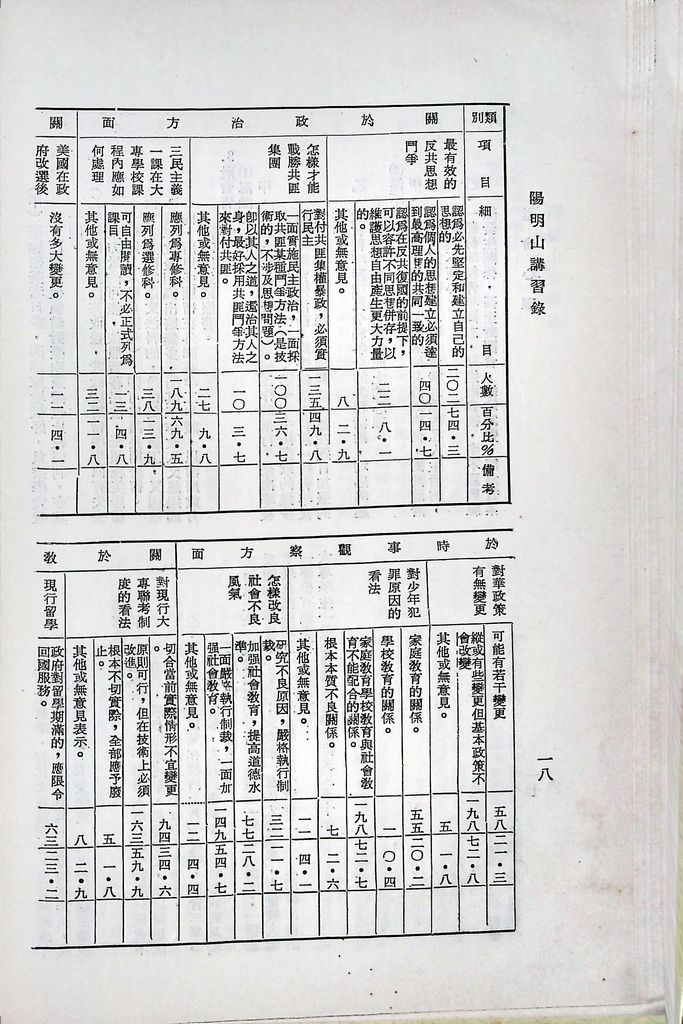 陽明山講習錄
一八
類別
項目
細目
人數
百分比%
備考
關於政治方面
最有效的
反共思想
鬥爭
認為必先堅定和建立自己的
思想的。
二〇二
七四・三
認為個人的思想建立必須達
到最高理想的共同一致的
四〇
一四・七
認為在反共復國的前提下，
可以容許不同思想併存，以
維護思想自由產生更大力量
的。
二二
八・一
其他或無意見。
八
二・九
怎樣才能
戰勝共匪
集團
對付共匪集權暴政，必須實
行民主
一三五
四九・八
一面實施民主政治，一面採
取共匪某種鬥爭方法（是技
術的，不涉及思想問題）。
一〇〇
三六・七
卽以其人之道，還治其人之
身，最好採用共匪鬥爭方法
來對付共匪。
一〇
三・七
其他或無意見。
二七
九・八
三民主義
一課在大
專學校課
程內應如
何處理
應列爲專修科。
一八九
六九・五
應列爲選修科。
三八
一三・九
可自由閱讀，不必正式列爲
課目。
一三
四・八
其他或無意見。
三二
一一・八
關
美國在政
府改選後
沒有多大變更。
一一
四・一
於時事觀察方面
對華政策
有無變更
可能有若干變更
五八
二一・三
縱或有些變更但基本政策不
會改變
一九八
七二・八
其他或無意見。
五
一・八
對少年犯
罪原因的
看法
家庭教育的關係。
五五
二〇・二
學校教育的關係。
一
〇・四
家庭教育學校教育與社會教
育不能配合的關係。
一九八
七二・七
根本本質不良關係。
七
二・六
其他或無意見。
一一
四・一
怎樣改良
社會不良
風氣
研究不良原因，嚴格執行制
裁。
三二
一一・七
加强社會教育，提高道德水
準。
七七
二八・二
一面嚴格執行制裁，一面加
强社會教育。
一四九
五四・七
其他或無意見。
一二
四・四
關於教
對現行大
專聯考制
度的看法
切合當前實際情形不宜變更
九四
三四・六
原則可行，但在技術上必須
改進。
一六三
五九・九
根本不切實際，全部應予廢
止。
五
一・八
其他或無意見表示。
八
二・九
現行留學
政府對留學期滿的，應限令
回國服務。
六三
二三・二